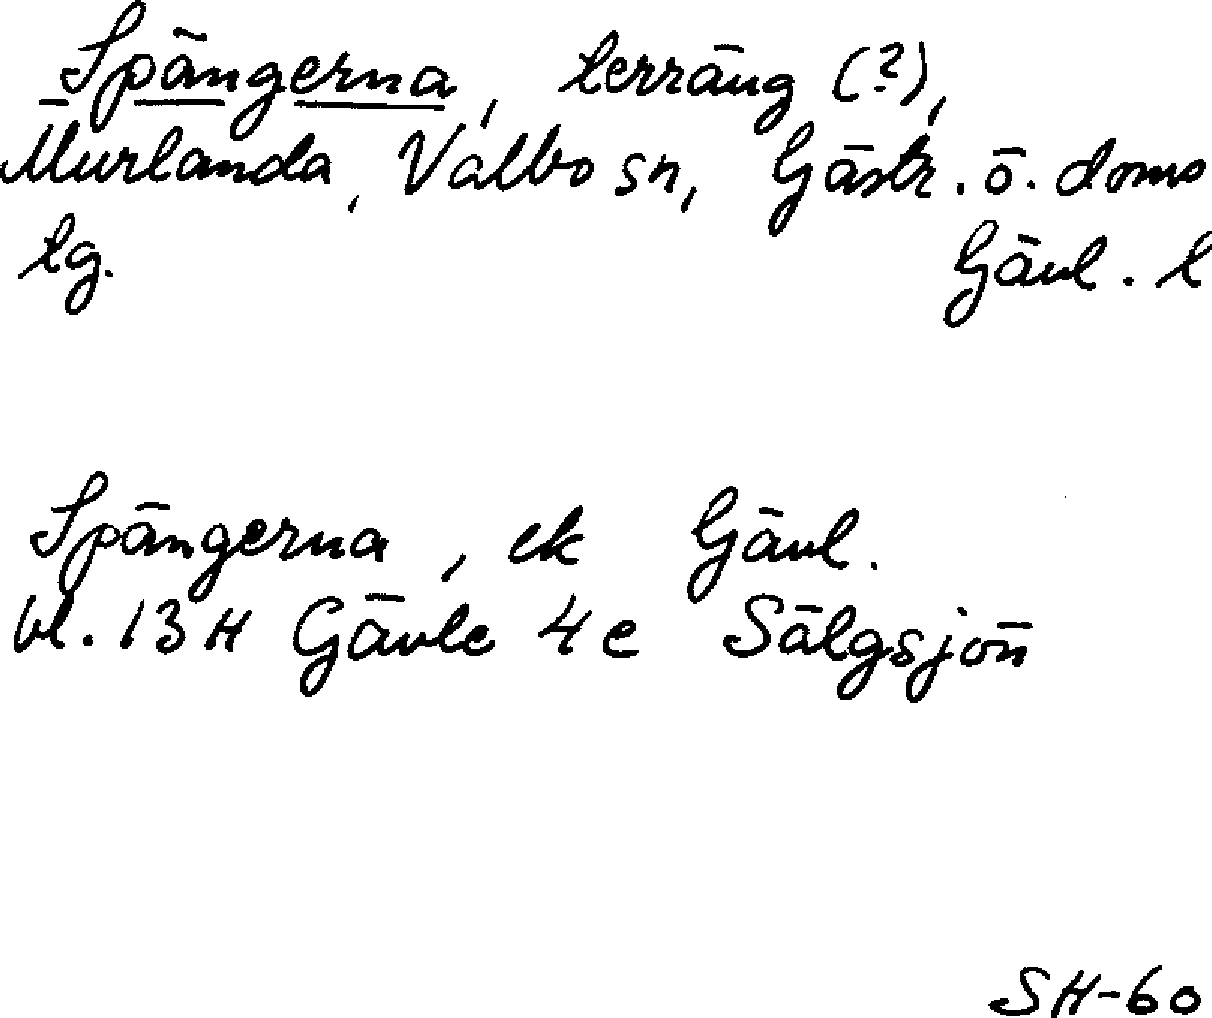 Spängerna, terräng (?),
Murlanda, Valbo sn, Gästr. ö. doms
tg. Gävl. l
Spängerna, ek Gävl.
bl. 13 H Gävle 4 e Sälgsjön
SH-60